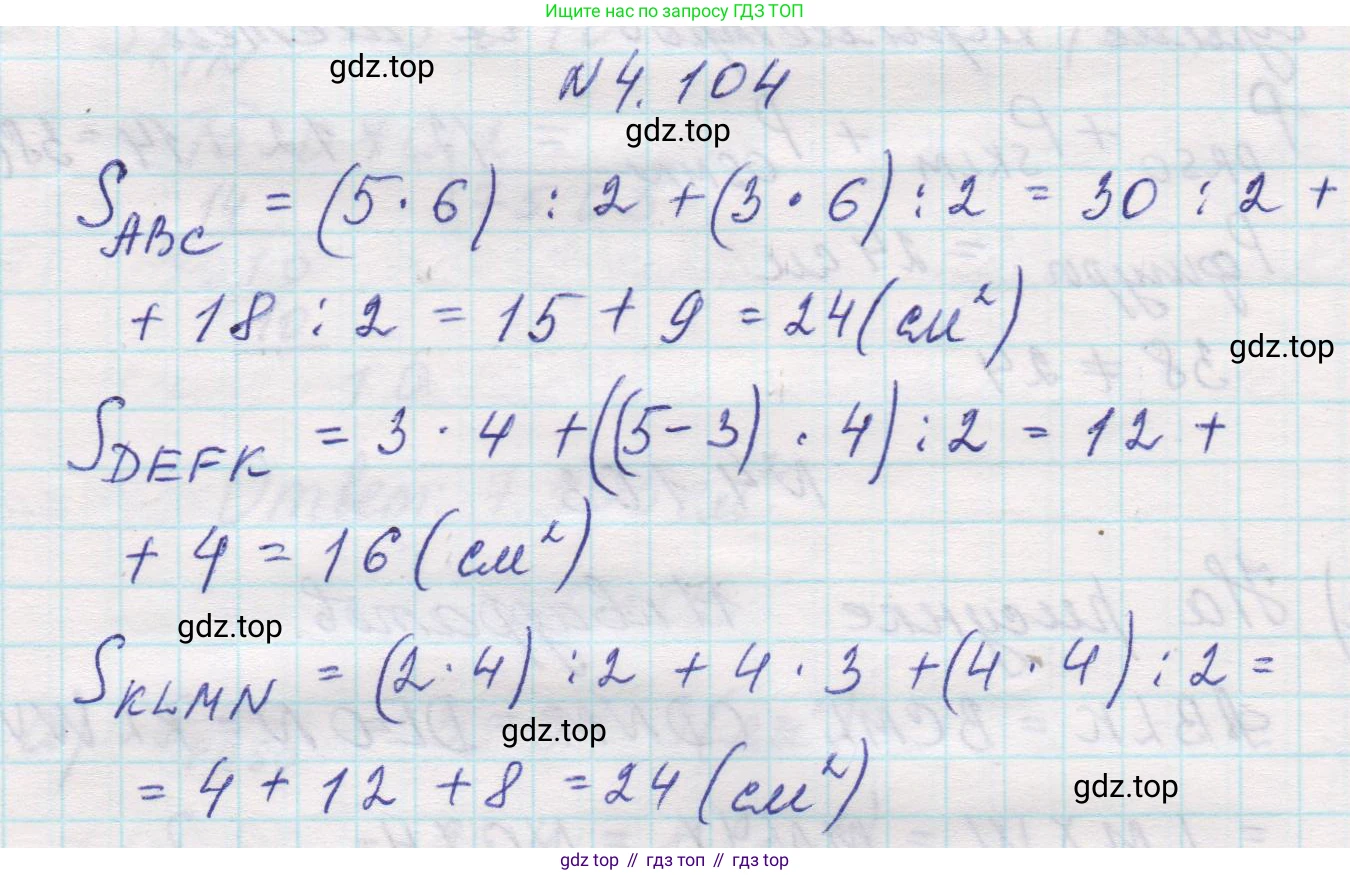 Ищите нас по запросу ГДЗ ТОП
gdz.top
N 4.104
gdz.top
S ABC = (5 · 6) : 2 + (3 · 6) : 2 = 30 : 2 +
+ 18 : 2 = 15 + 9 = 24 (см²)
gdz.top
S DEFK = 3 · 4 + ((5 - 3) · 4) : 2 = 12 +
+ 4 = 16 (см²)
gdz.top
S KLMN = (2 · 4) : 2 + 4 · 3 + (4 · 4) : 2 =
gdz.top
= 4 + 12 + 8 = 24 (см²)
gdz.top
gdz top // гдз топ // gdz top